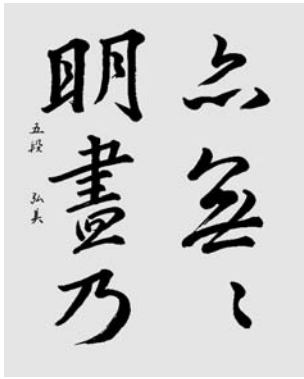 亦無〻
明盡乃
五段 弘美